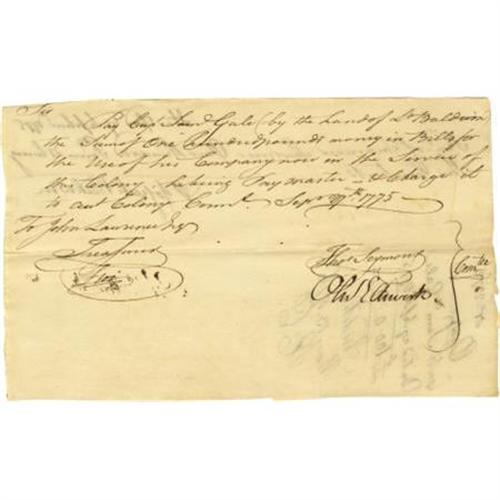 Sir
Pay Capt Saml Gale (by the hand of Lt Baldwin
the Sum of One hundred pounds money in Bills for
the Use of his Company now in the Service of
this Colony he being Paymaster & Charge it
to acct Colony Sept 27th 1775
To John Lawrence Esq
Treasurer
Thos Seymour
Comtee